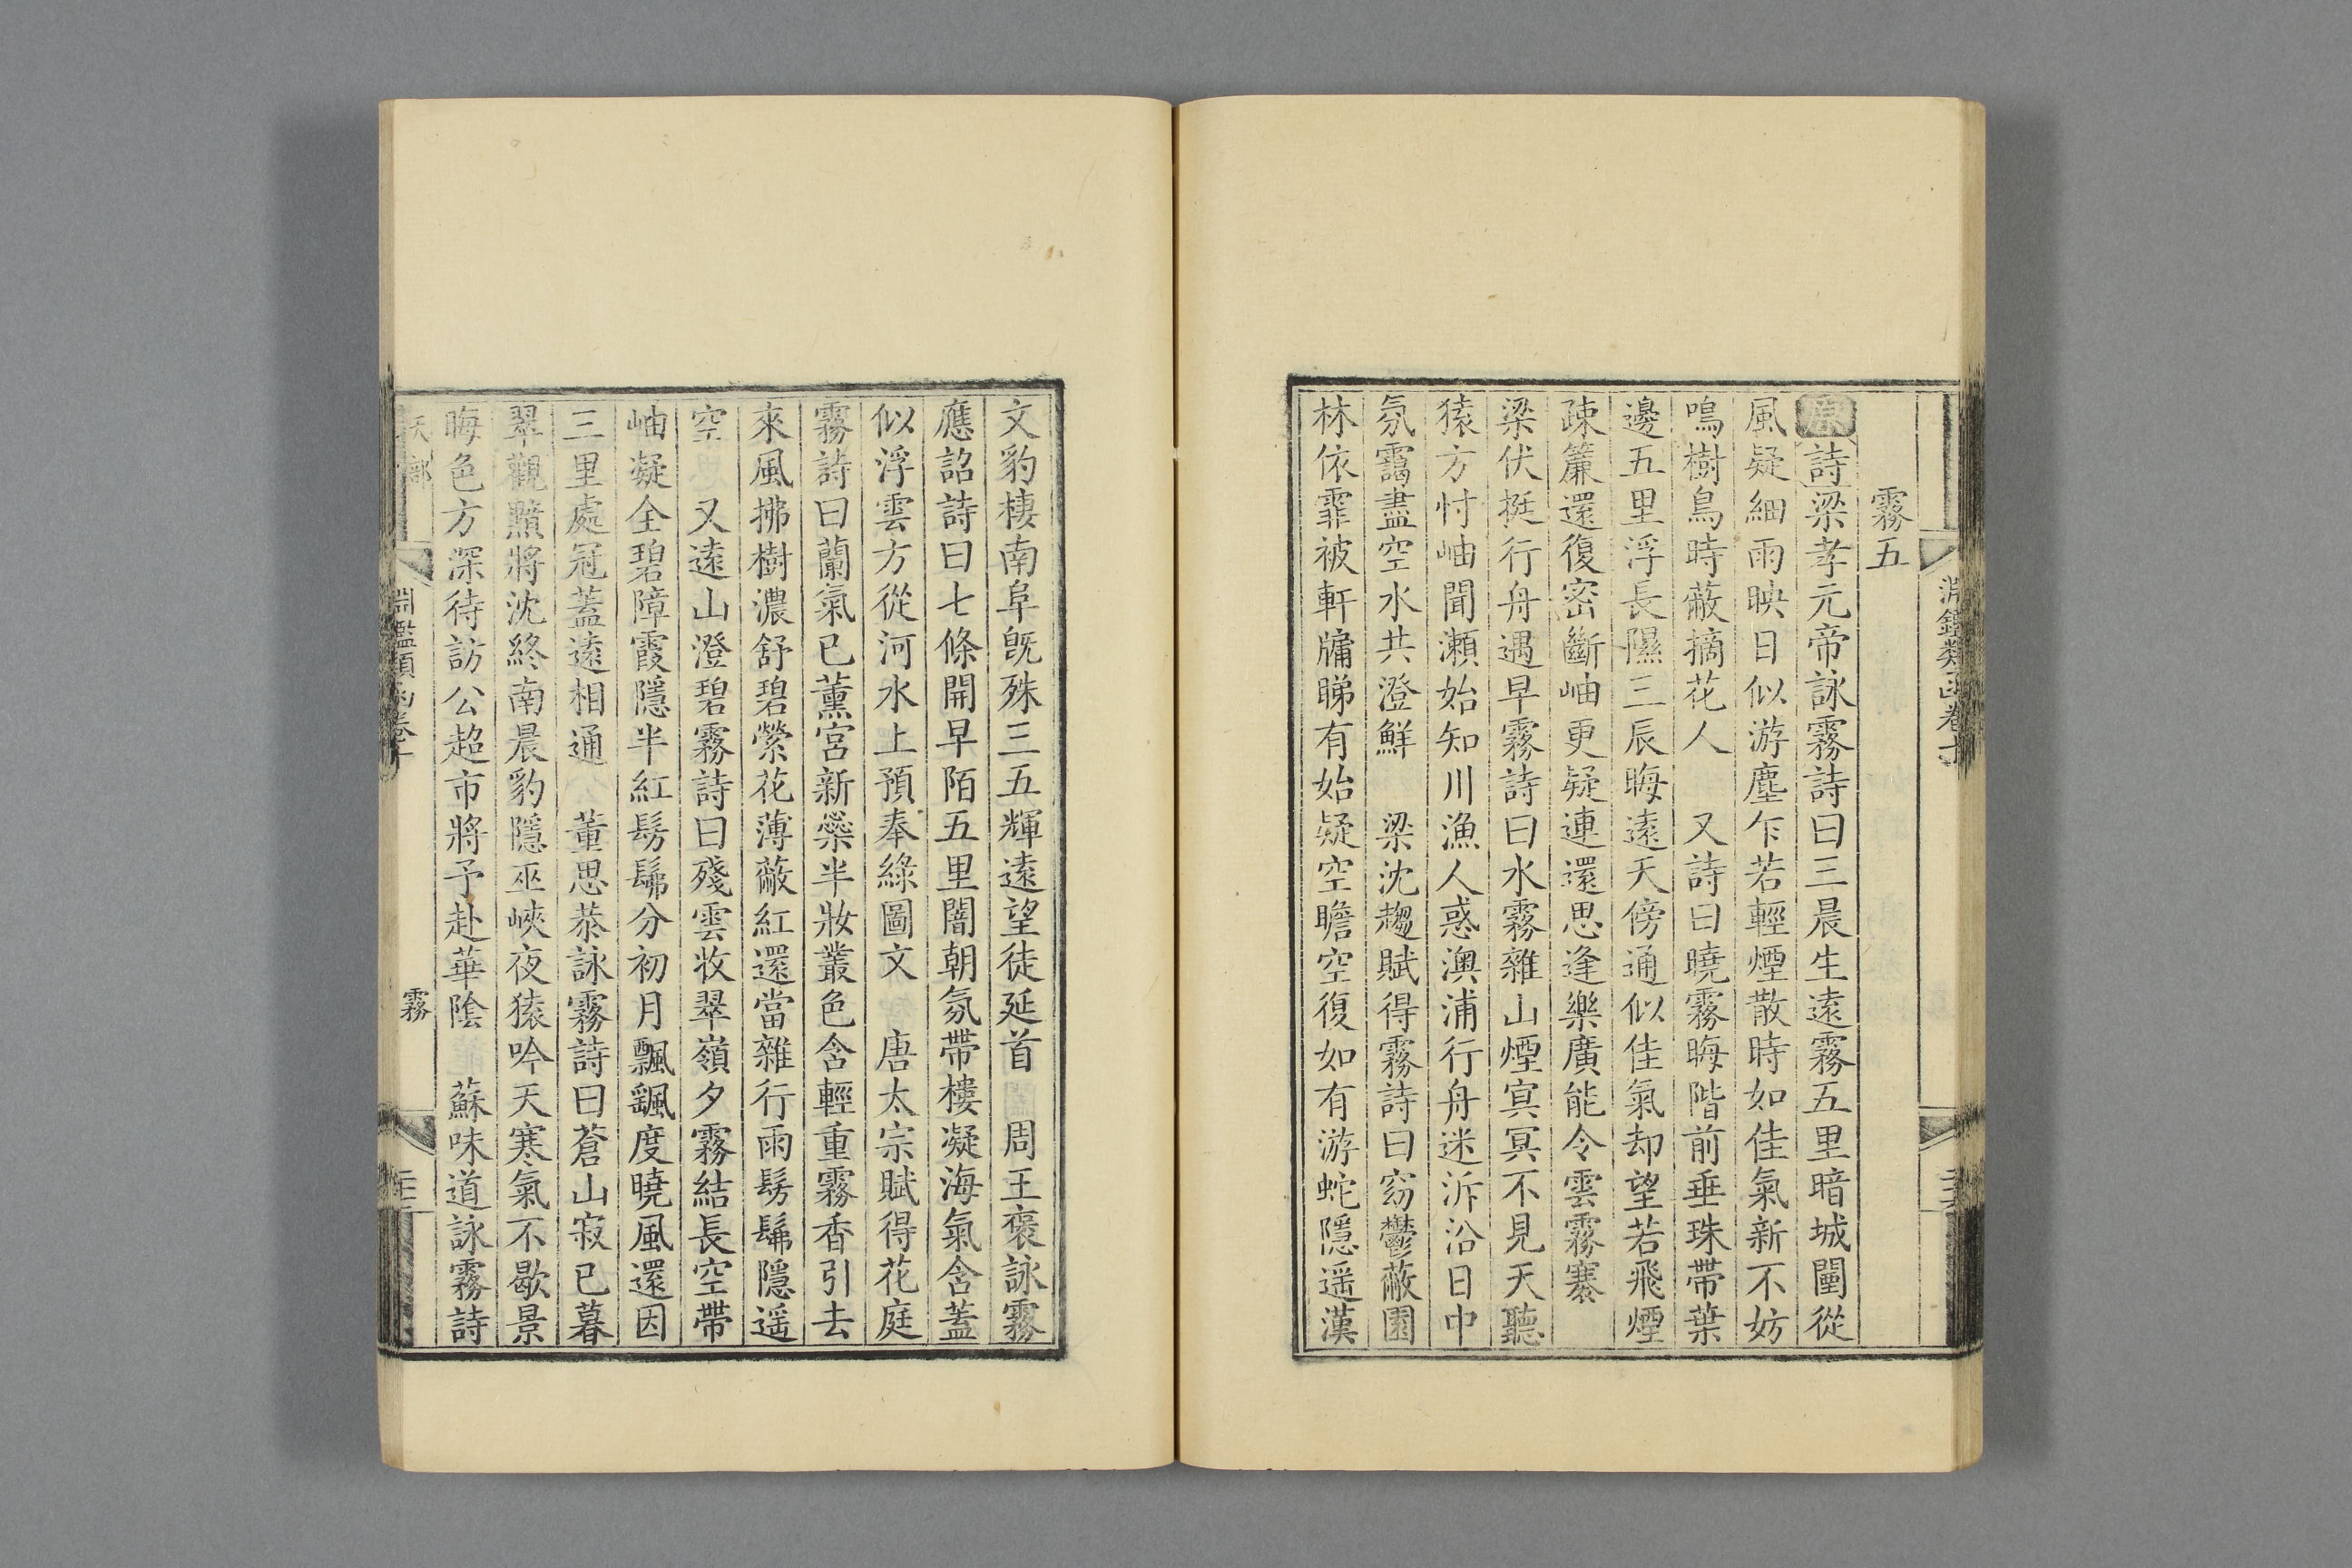 淵鑑類函卷十
霧五
原詩梁孝元帝詠霧詩曰三晨生遠霧五里暗城闉從
風疑細雨映日似游塵乍若輕煙散時如佳氣新不妨
鳴樹鳥時蔽摘花人　又詩曰曉霧晦階前垂珠帶葉
邊五里浮長隰三辰晦遠天傍通似佳氣却望若飛煙
疎簾還復密斷岫更疑連還思逢樂廣能令雲霧褰
梁伏挺行舟遇早霧詩曰水霧雜山煙冥冥不見天聽
猿方忖岫聞瀨始知川漁人惑澳浦行舟迷泝沿日中
氛靄盡空水共澄鮮　梁沈趨賦得霧詩曰窈鬱蔽園
林依霏被軒牖睇有始疑空瞻空復如有游蛇隱遥漢
文豹棲南阜旣殊三五輝遠望徒延首　周王褒詠霧
應詔詩曰七條開早陌五里闇朝氛帶樓凝海氣含蓋
似浮雲方從河水上預奉綠圖文　唐太宗賦得花庭
霧詩曰蘭氣已薰宮新蘂半妝叢色含輕重霧香引去
來風拂樹濃舒碧縈花薄蔽紅還當雜行雨髣髴隱遥
空　又遠山澄碧霧詩曰殘雲收翠嶺夕霧結長空帶
岫凝全碧障霞隱半紅髣髴分初月飄颻度曉風還因
三里處冠蓋遠相通　董思恭詠霧詩曰蒼山寂已暮
翠觀黯將沈終南晨豹隱巫峽夜猿吟天寒氣不歇景
晦色方深待訪公超市將予赴華陰　蘇味道詠霧詩
天部
淵鑑類函卷十
霧